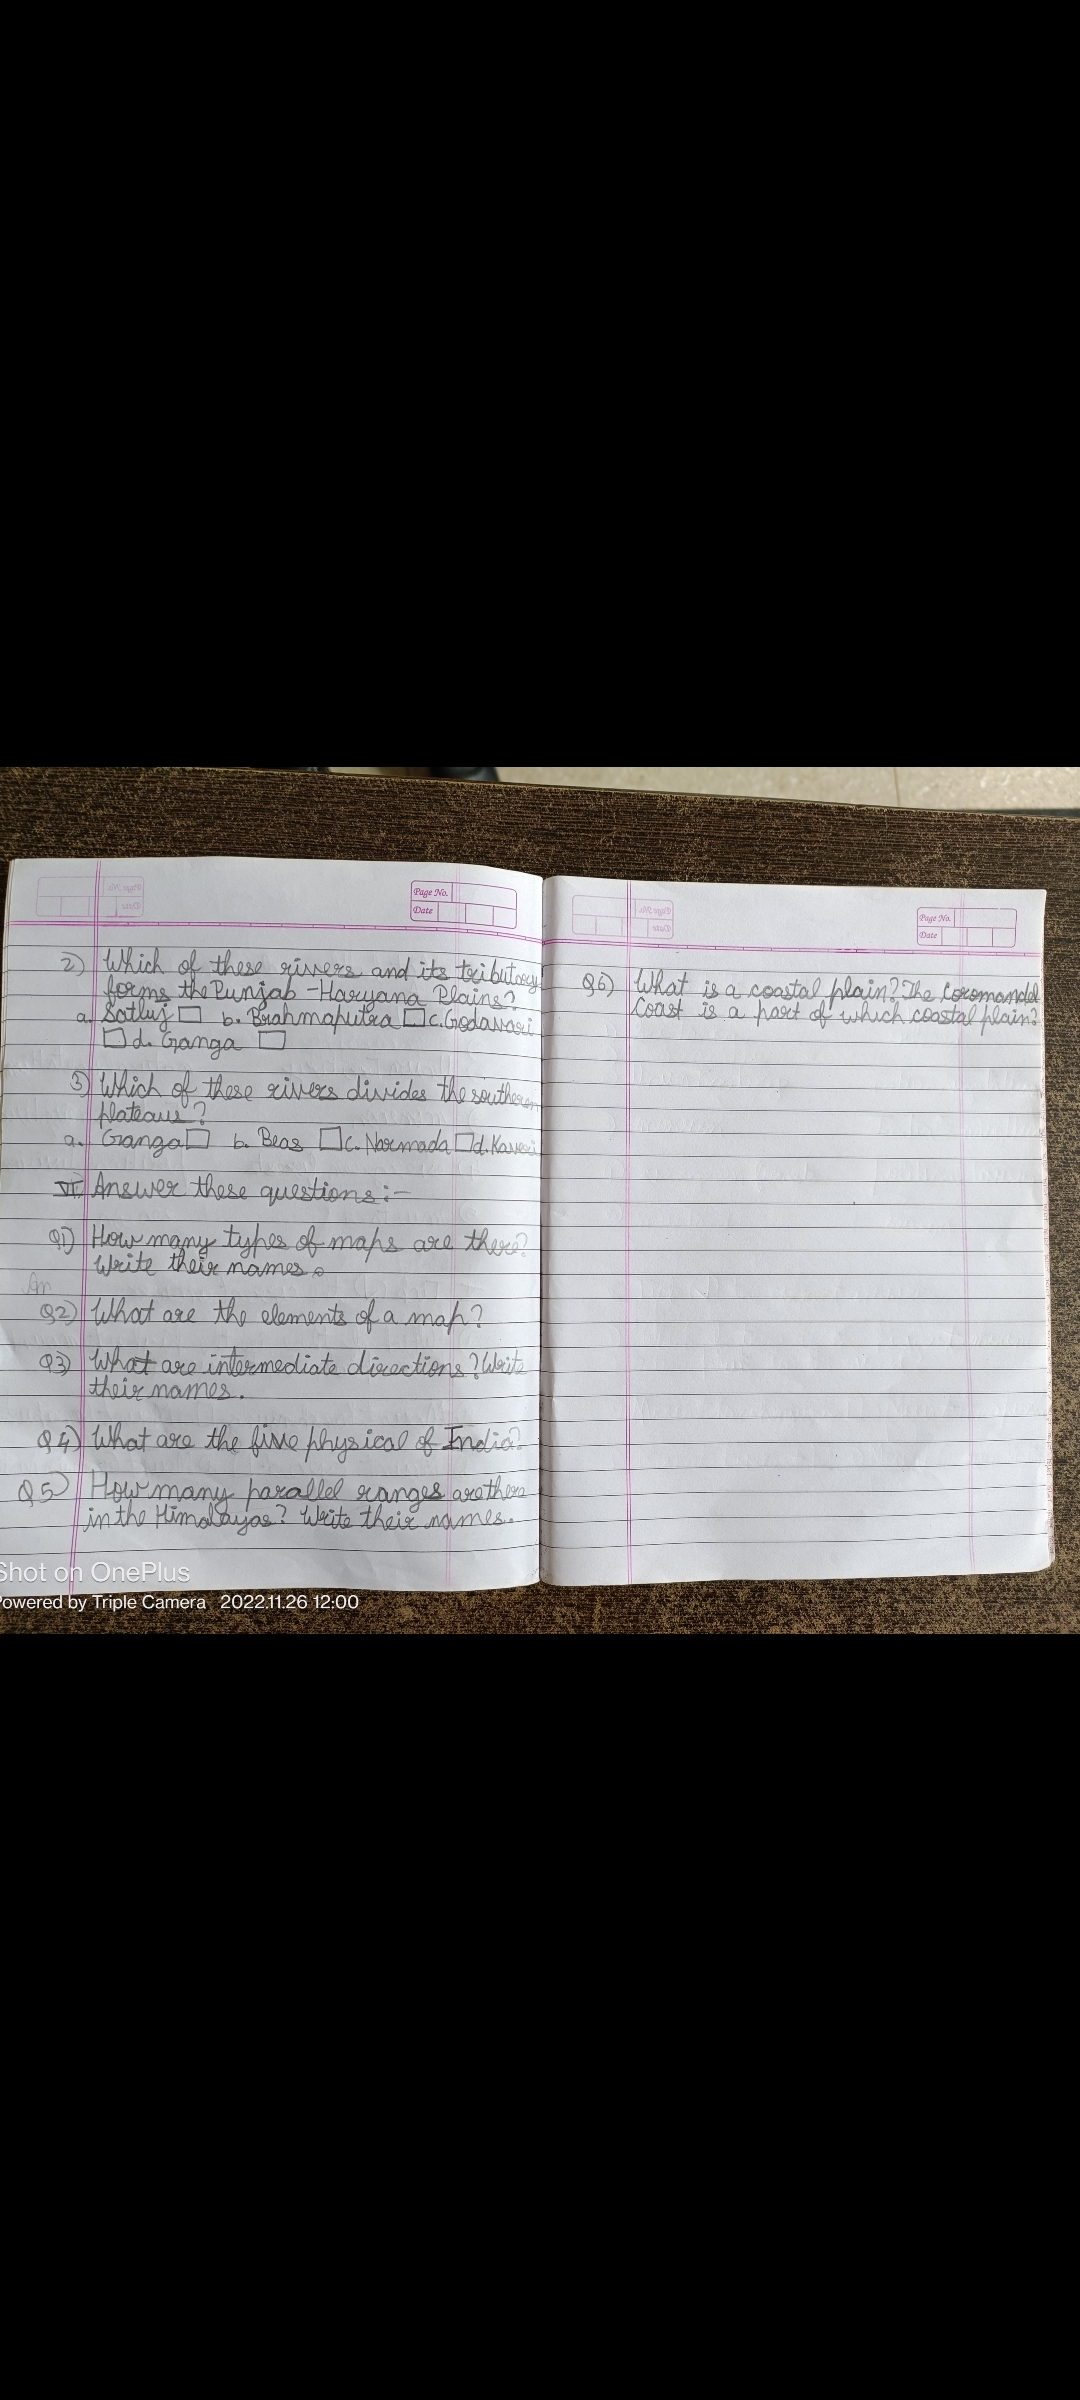 Page No.
Date
2) Which of these rivers and its tributary
forms the Punjab - Haryana Plains?
a. Satluj b. Brahmaputra c. Godavari
d. Ganga
3) Which of these rivers divides the southern
plateaus?
a. Ganga b. Beas c. Narmada d. Kaveri
VI Answer these questions :-
Q1) How many types of maps are there?
Write their names.
An
Q2) What are the elements of a map?
Q3) What are intermediate directions? Write
their names.
Q4) What are the five physical of India?
Q5) How many parallel ranges are there
in the Himalayas? Write their names.
Page No.
Date
Q6) What is a coastal plain? The Coromandel
Coast is a part of which coastal plain?
Shot on OnePlus
Powered by Triple Camera 2022.11.26 12:00